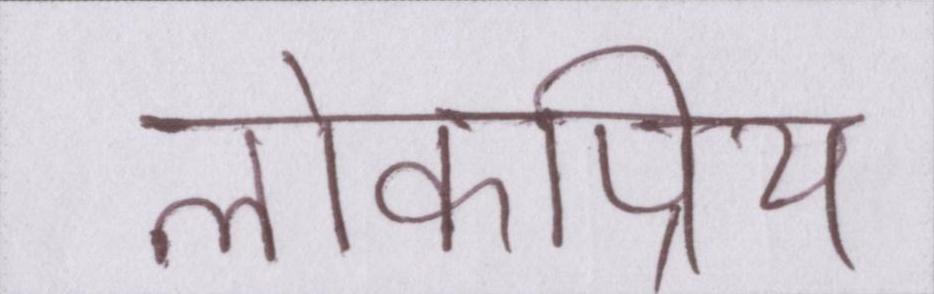 लोकप्रिय